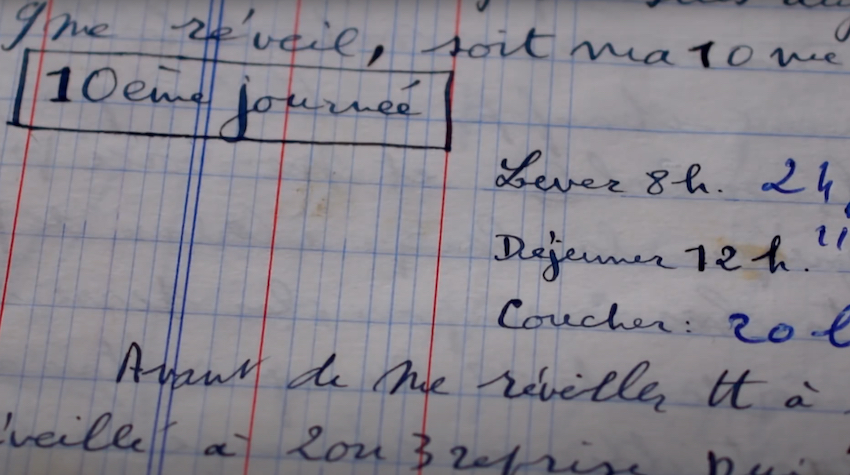 9me réveil, soit ma 10 me
10ème journée
Lever 8h. 24
Déjeuner 12 h. "
Coucher: 20
Avant de me réveiller tt à
éveillé à 2 ou 3 reprise